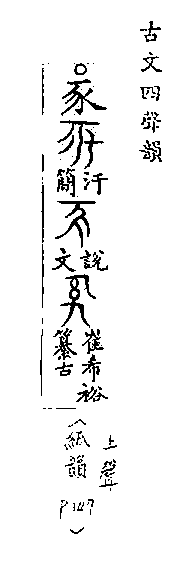 古文四聲韻
豕
汗
簡
說
文
崔希裕
纂古
上聲
(紙韻 P147)